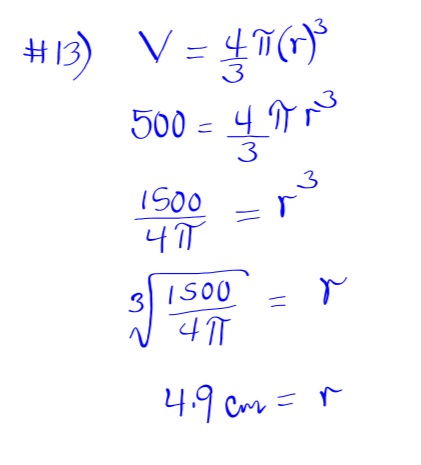 #13) V = 4/3 π(r)³
500 = 4/3 π r³
1500/4π = r³
∛(1500/4π) = r
4.9 cm = r